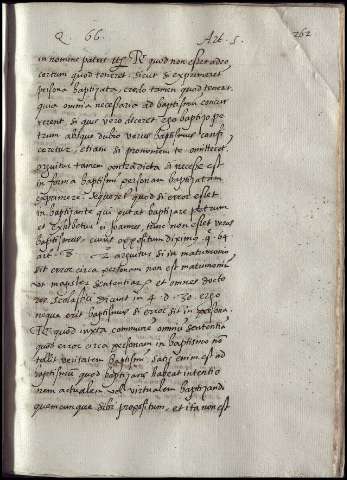 Q. 66. Art. 5. 262
in nomine patris etc. R. quod non est adeo
certum quod teneret. sicut si exprimeret
persona baptizata, credo tamen quod teneret.
quia omnia necessaria ad baptismum concur
rerent. si quis vero diceret ego baptizo pe
trum absque dubio verus baptismus confi
ceretur, etiam si pronomen te omitteret.
arguitur tamen contra dicta si necesse est
in forma baptismi personam baptizatam
exprimere. sequeretur quod si error esset
in baptizante qui putat baptizare petrum
et est ioannes, tunc non esset verus
baptismus. cuius oppositum diximus q. 64
art. 8. 2 arguitur si in matrimonio
sit error circa personam non est matrimonium
ut magister sententiarum et omnes docto
res scolastici dicunt in 4. d. 30. ergo
neque erit baptismus si error sit in persona
R. quod iuxta communem omnium sententiam
quod error circa personam in baptismo non
tollit veritatem baptismi. satis enim est ad
baptismum quod baptizans habeat intentio
nem actualem vel virtualem baptizandi
quemcunque sibi propositum, et ita non est